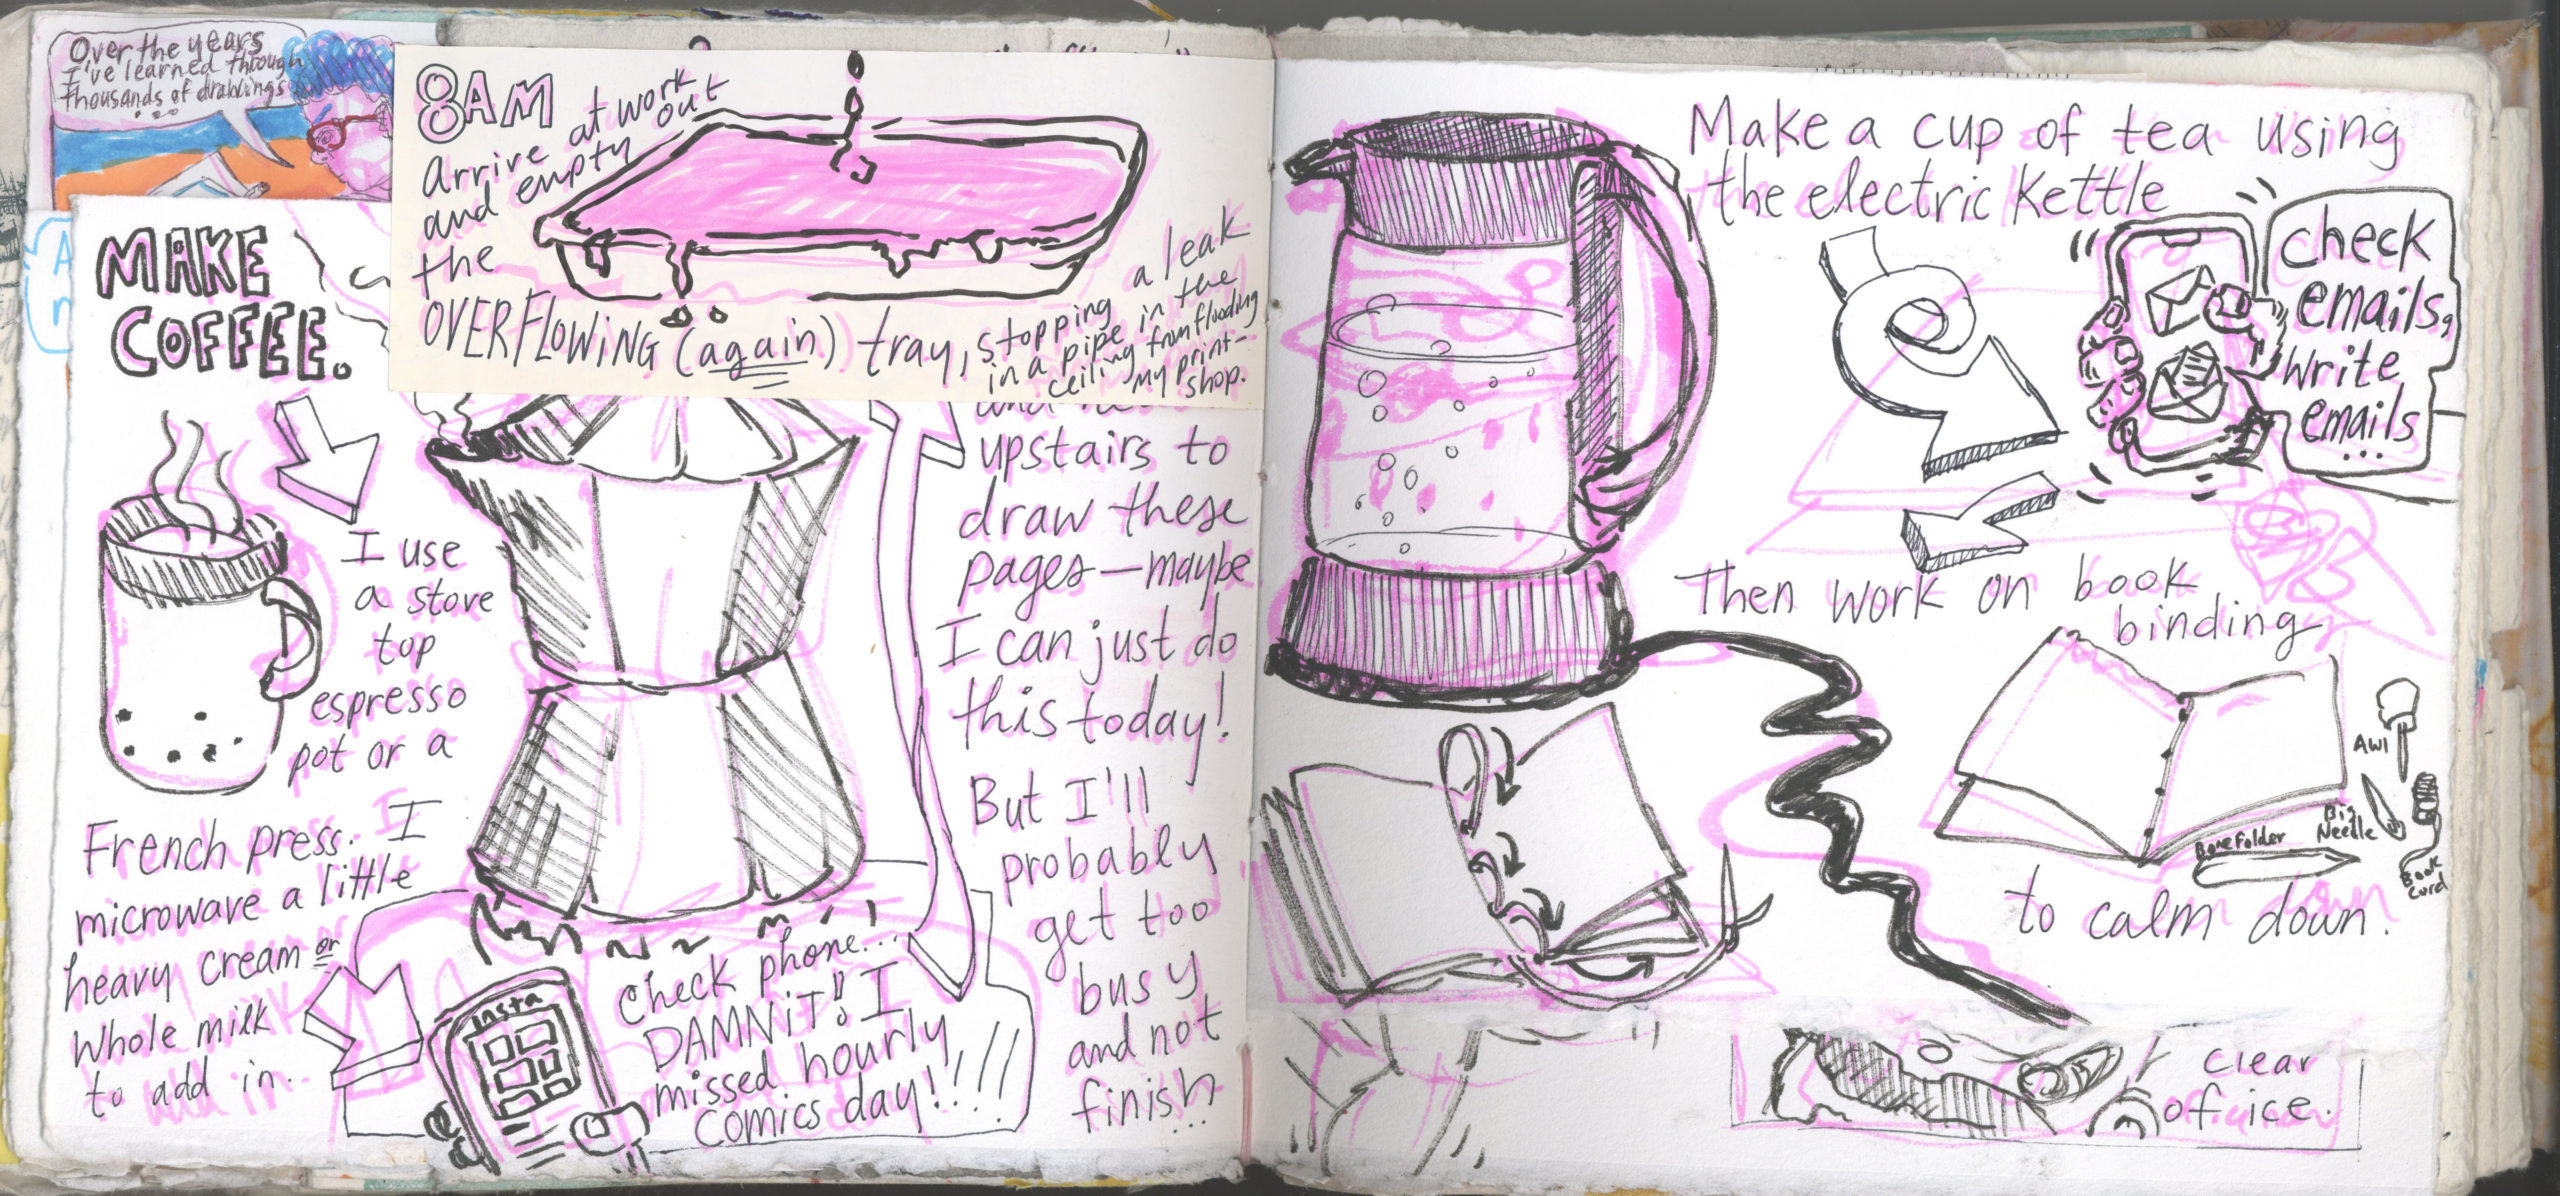 Over the years
I've learned through
thousands of
...
MAKE
COFFEE.
I use
a stove
top
espresso
pot or a
French press. I
microwave a little
heavy cream or
whole milk
to add in.
8AM
arrive at work
and empty out
the
OVERFLOWING (again) tray,
stopping a leak
in a pipe in the
ceiling from flooding
my print-
shop.
upstairs to
draw these
pages—maybe
I can just do
this today!
But I'll
probably
get too
busy
and not
finish...
Insta
Check phone...
DAMNiT!! I
missed hourly
comics day!!!!
Make a cup of tea using
the electric kettle
check
emails,
write
emails
...
Then work on book
binding
Awl
Big
Needle
Bone Folder
Book
Cord
to calm down.
clear
of ice.